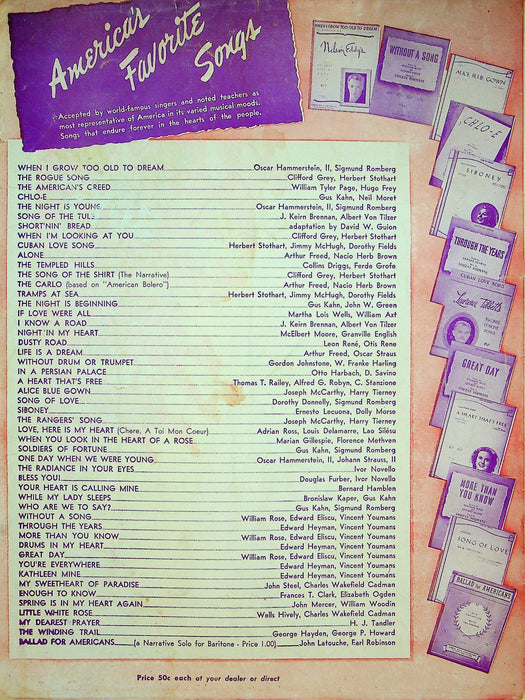 America's
Favorite
Songs
Accepted by world-famous singers and noted teachers as
most representative of America in its varied musical moods.
Songs that endure forever in the hearts of the people.
WHEN I GROW TOO OLD TO DREAM
Nelson Eddy's
WITHOUT A SONG
ALICE BLUE GOWN
CHLO-E
SIBONEY
THROUGH THE YEARS
CUBAN LOVE SONG
Lawrence Tibbett's
GREAT DAY
A HEART THAT'S FREE
MORE THAN
YOU KNOW
SONG OF LOVE
BALLAD for AMERICANS
WHEN I GROW TOO OLD TO DREAM Oscar Hammerstein, II, Sigmund Romberg
THE ROGUE SONG Clifford Grey, Herbert Stothart
THE AMERICAN'S CREED William Tyler Page, Hugo Frey
CHLO-E Gus Kahn, Neil Moret
THE NIGHT IS YOUNG Oscar Hammerstein, II, Sigmund Romberg
SONG OF THE TULE J. Keirn Brennan, Albert Von Tilzer
SHORT'NIN' BREAD adaptation by David W. Guion
WHEN I'M LOOKING AT YOU Clifford Grey, Herbert Stothart
CUBAN LOVE SONG Herbert Stothart, Jimmy McHugh, Dorothy Fields
ALONE Arthur Freed, Nacio Herb Brown
THE TEMPLED HILLS Collins Driggs, Ferde Grofe
THE SONG OF THE SHIRT (The Narrative) Clifford Grey, Herbert Stothart
THE CARLO (based on "American Bolero") Arthur Freed, Nacio Herb Brown
TRAMPS AT SEA Herbert Stothart, Jimmy McHugh, Dorothy Fields
THE NIGHT IS BEGINNING Gus Kahn, John W. Green
IF LOVE WERE ALL Martha Lois Wells, William Axt
I KNOW A ROAD J. Keirn Brennan, Albert Von Tilzer
NIGHT IN MY HEART McElbert Moore, Granville English
DUSTY ROAD Leon René, Otis Rene
LIFE IS A DREAM Arthur Freed, Oscar Straus
WITHOUT DRUM OR TRUMPET Gordon Johnstone, W. Franke Harling
IN A PERSIAN PALACE Otto Harbach, D. Savino
A HEART THAT'S FREE Thomas T. Railey, Alfred G. Robyn, C. Stanzione
ALICE BLUE GOWN Joseph McCarthy, Harry Tierney
SONG OF LOVE Dorothy Donnelly, Sigmund Romberg
SIBONEY Ernesto Lecuona, Dolly Morse
THE RANGERS' SONG Joseph McCarthy, Harry Tierney
LOVE, HERE IS MY HEART (Chere, A Toi Mon Coeur) Adrian Ross, Louis Delamarre, Lao Silésu
WHEN YOU LOOK IN THE HEART OF A ROSE Marian Gillespie, Florence Methven
SOLDIERS OF FORTUNE Gus Kahn, Sigmund Romberg
ONE DAY WHEN WE WERE YOUNG Oscar Hammerstein, II, Johann Strauss, II
THE RADIANCE IN YOUR EYES Ivor Novello
BLESS YOU! Douglas Furber, Ivor Novello
YOUR HEART IS CALLING MINE Bernard Hamblen
WHILE MY LADY SLEEPS Bronislaw Kaper, Gus Kahn
WHO ARE WE TO SAY? Gus Kahn, Sigmund Romberg
WITHOUT A SONG William Rose, Edward Eliscu, Vincent Youmans
THROUGH THE YEARS Edward Heyman, Vincent Youmans
MORE THAN YOU KNOW William Rose, Edward Eliscu, Vincent Youmans
DRUMS IN MY HEART Edward Heyman, Vincent Youmans
GREAT DAY William Rose, Edward Eliscu, Vincent Youmans
YOU'RE EVERYWHERE Edward Heyman, Vincent Youmans
KATHLEEN MINE Edward Heyman, Vincent Youmans
MY SWEETHEART OF PARADISE John Steel, Charles Wakefield Cadman
ENOUGH TO KNOW Frances T. Clark, Elizabeth Ogden
SPRING IS IN MY HEART AGAIN John Mercer, William Woodin
LITTLE WHITE ROSE Wells Hively, Charles Wakefield Cadman
MY DEAREST PRAYER H. J. Tandler
THE WINDING TRAIL George Hayden, George P. Howard
BALLAD FOR AMERICANS (a Narrative Solo for Baritone - Price 1.00) John Latouche, Earl Robinson
Price 50c each at your dealer or direct